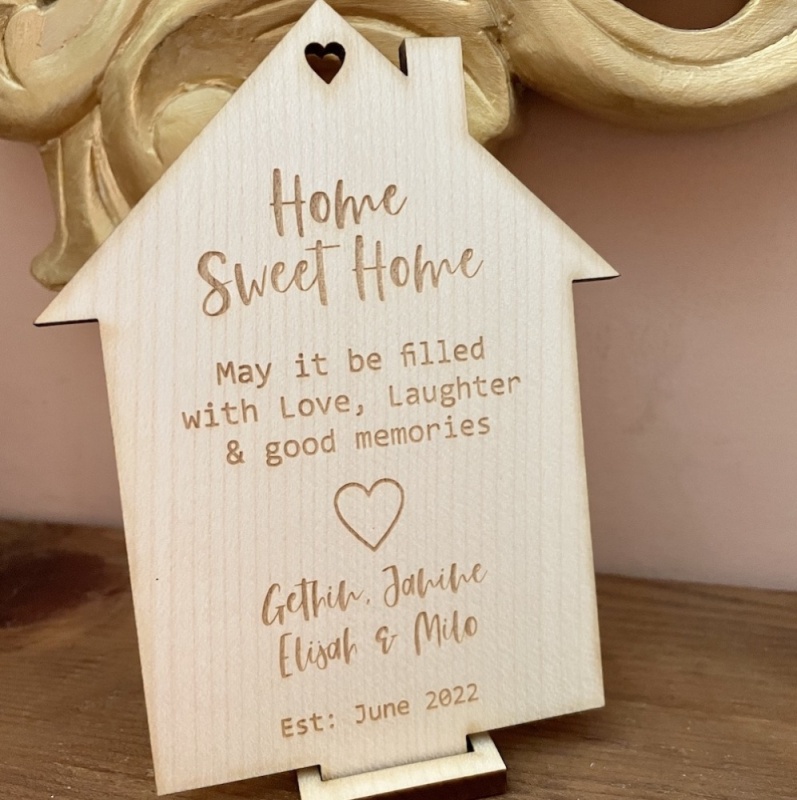 Home
Sweet Home
May it be filled
with Love, Laughter
& good memories
Gethin, Janine
Elijah & Milo
Est: June 2022